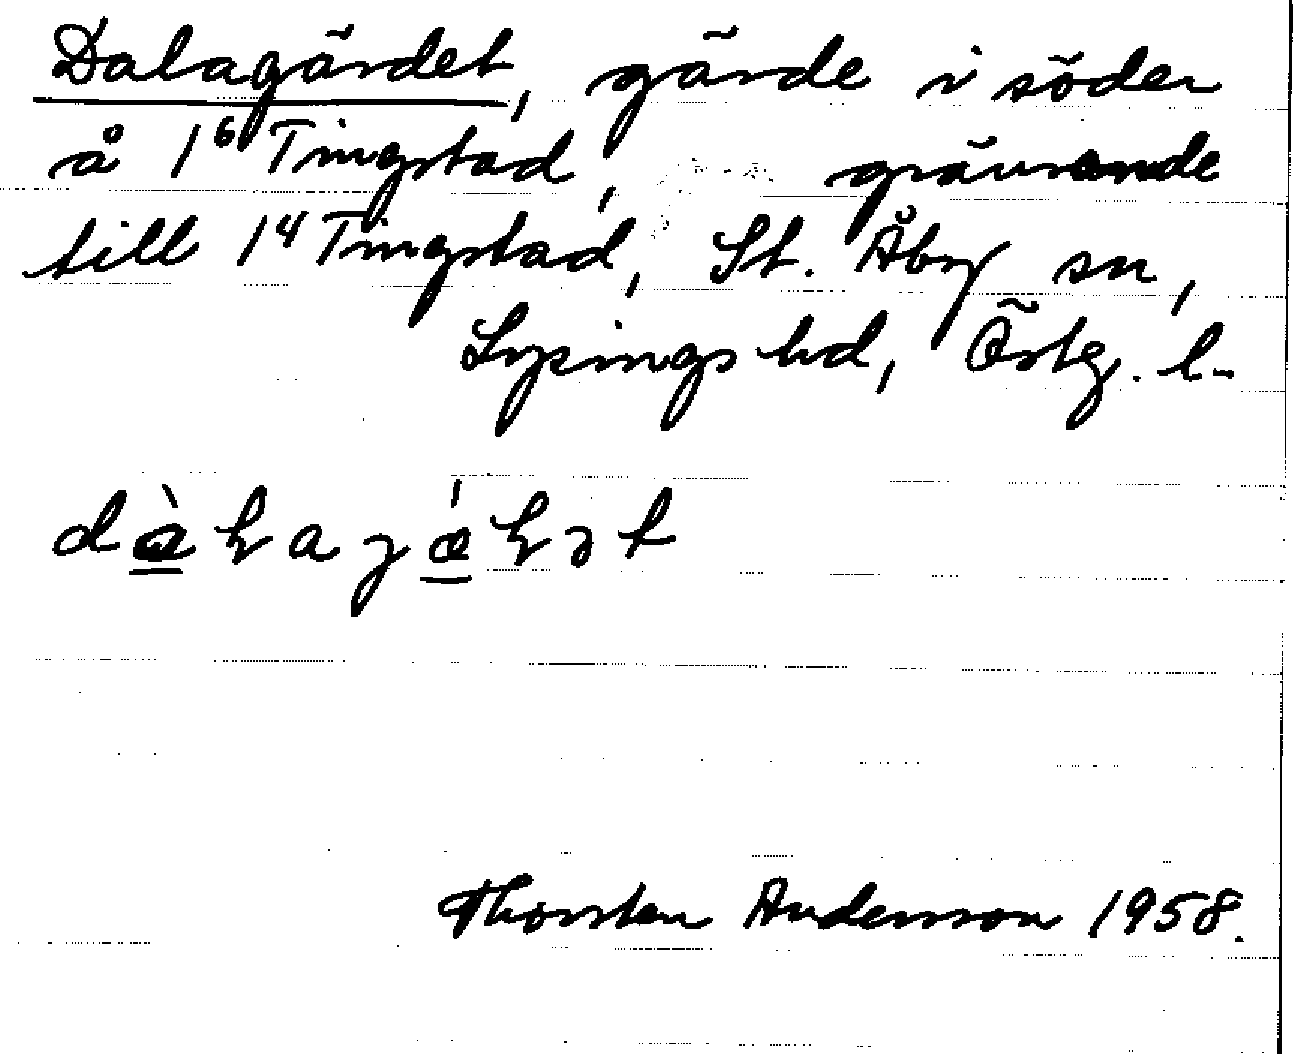 Dalagärdet, gärde i söder
å 1⁶ Tingstad, gränsande
till 1⁴ Tingstad, St. Åby sn,
Lysings hd, Östg. l.
Thorsten Andersson 1958.